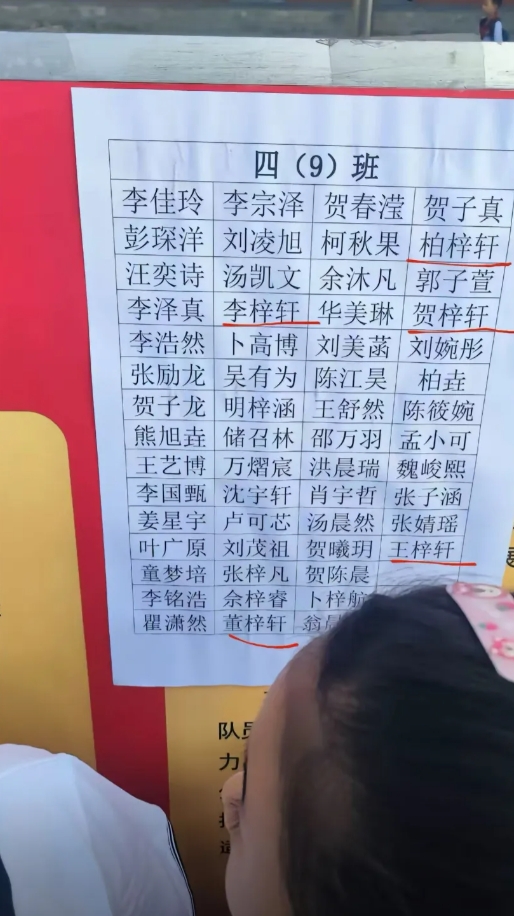 四（9）班
李佳玲 李宗泽 贺春滢 贺子真
彭琛洋 刘凌旭 柯秋果 柏梓轩
汪奕诗 汤凯文 余沐凡 郭子萱
李泽真 李梓轩 华美琳 贺梓轩
李浩然 卜高博 刘美菡 刘婉彤
张励龙 吴有为 陈江昊 柏垚
贺子龙 明梓涵 王舒然 陈筱婉
熊旭垚 储召林 邵万羽 孟小可
王艺博 万熠宸 洪晨瑞 魏峻熙
李国甄 沈宇轩 肖宇哲 张子涵
姜星宇 卢可芯 汤晨然 张婧瑶
叶广原 刘茂祖 贺曦玥 王梓轩
童梦培 张梓凡 贺陈晨
李铭浩 佘梓睿 卜梓航
瞿潇然 董梓轩 翁
队员
力